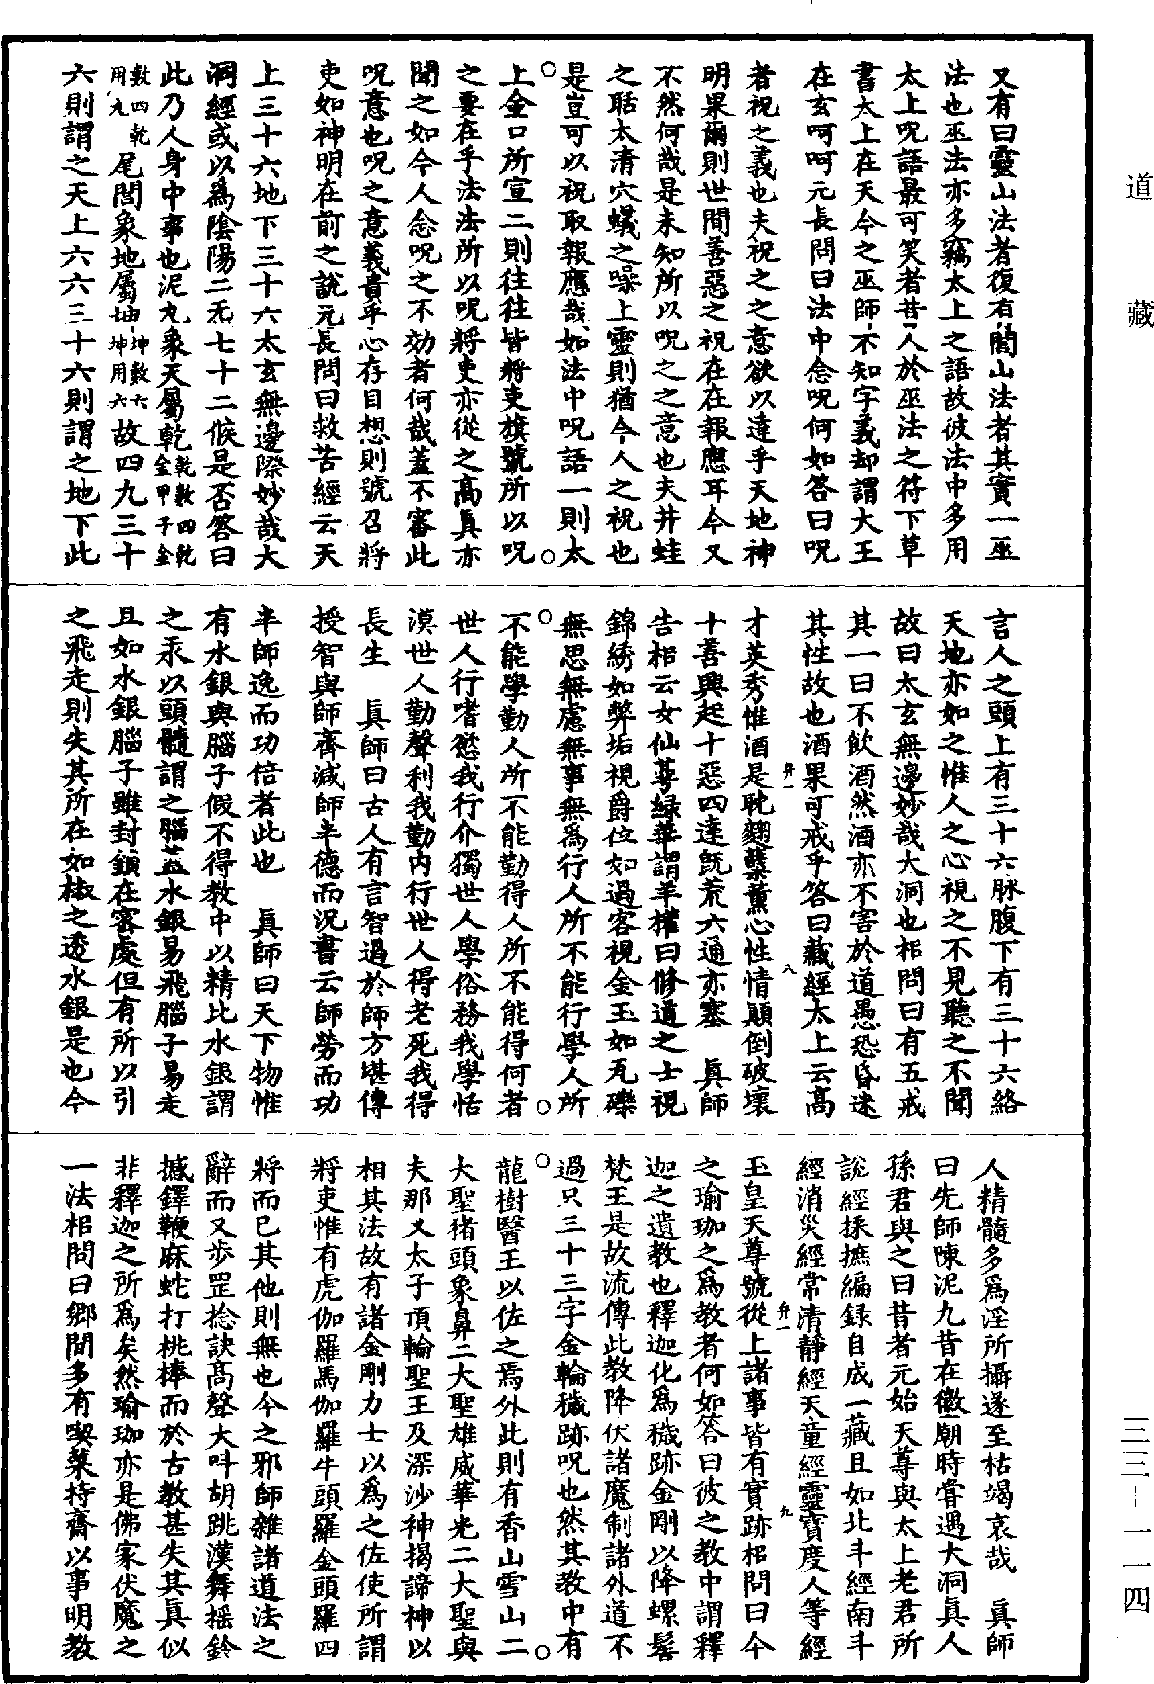 又有曰靈山法者復有閭山法者其實一巫
法也巫法亦多竊太上之語故彼法中多用
太上呪語最可笑者昔人於巫法之符下草
書太上在天今之巫師不知字義却謂大王
在玄呵呵元長問曰法中念呪何如答曰呪
者祝之義也夫祝之之意欲以達乎天地神
明果爾則世間善惡之祝在在報應耳今又
不然何哉是未知所以呪之之意也夫井蛙
之聒太清穴蟻之噪上靈則猶今人之祝也
是豈可以祝取報應哉如法中呪語一則太
上金口所宣二則往往皆將吏旗號所以呪
之要在乎法法所以呪將吏亦從之高真亦
聞之如今人念呪之不効者何哉蓋不審此
呪意也呪之意義貴乎心存目想則號召將
吏如神明在前之說元長問曰救苦經云天
上三十六地下三十六太玄無邊際妙哉大
洞經或以為陰陽二炁七十二候是否答曰
此乃人身中事也泥丸象天屬乾乾數四乾金甲子金
數四乾用九尾閭象地屬坤坤數六坤用六故四九三十
六則謂之天上六六三十六則謂之地下此
言人之頭上有三十六脉腹下有三十六絡
天地亦如之惟人之心視之不見聽之不聞
故曰太玄無邊妙哉大洞也相問曰有五戒
其一曰不飲酒然酒亦不害於道愚恐昏迷
其性故也酒果可戒乎答曰藏經太上云高
才英秀惟酒是耽麴蘖薰心性情顛倒破壞
十善興起十惡四達旣荒六通亦塞　真師
告相云女仙蕚緑華謂羊權曰修道之士視
錦綉如弊垢視爵位如過客視金玉如瓦礫
無思無慮無事無為行人所不能行學人所
不能學勤人所不能勤得人所不能得何者
世人行嗜慾我行介獨世人學俗務我學恬
漠世人勤聲利我勤內行世人得老死我得
長生　真師曰古人有言智過於師方堪傳
授智與師齊減師半德而況書云師勞而功
半師逸而功倍者此也　真師曰天下物惟
有水銀與腦子假不得教中以精比水銀謂
之汞以頭髓謂之腦蓋水銀易飛腦子易走
且如水銀腦子雖封鎖在密處但有所以引
之飛走則失其所在如椒之透水銀是也今
人精髓多為淫所攝遂至枯竭哀哉　真師
曰先師陳泥九昔在徽廟時嘗遇大洞真人
孫君與之曰昔者元始天尊與太上老君所
說經採摭編録自成一藏且如北斗經南斗
經消災經常清靜經天童經靈寶度人等經
玉皇天尊號從上諸事皆有實跡相問曰今
之瑜珈之為教者何如答曰彼之教中謂釋
迦之遺教也釋迦化為穢跡金剛以降螺髻
梵王是故流傳此教降伏諸魔制諸外道不
過只三十三字金輪穢跡呪也然其教中有
龍樹醫王以佐之焉外此則有香山雪山二
大聖猪頭象鼻二大聖雄威華光二大聖與
夫那叉太子頂輪聖王及深沙神揭諦神以
相其法故有諸金剛力士以為之佐使所謂
將吏惟有虎伽羅馬伽羅牛頭羅金頭羅四
將而已其他則無也今之邪師雜諸道法之
辭而又步罡捻訣高聲大叫胡跳漢舞摇鈴
撼鐸鞭麻蛇打桃棒而於古教甚失其真似
非釋迦之所為矣然瑜珈亦是佛家伏魔之
一法相問曰鄉間多有喫菜持齋以事明教
弁一
八
弁一
九
道藏
三三-一一四